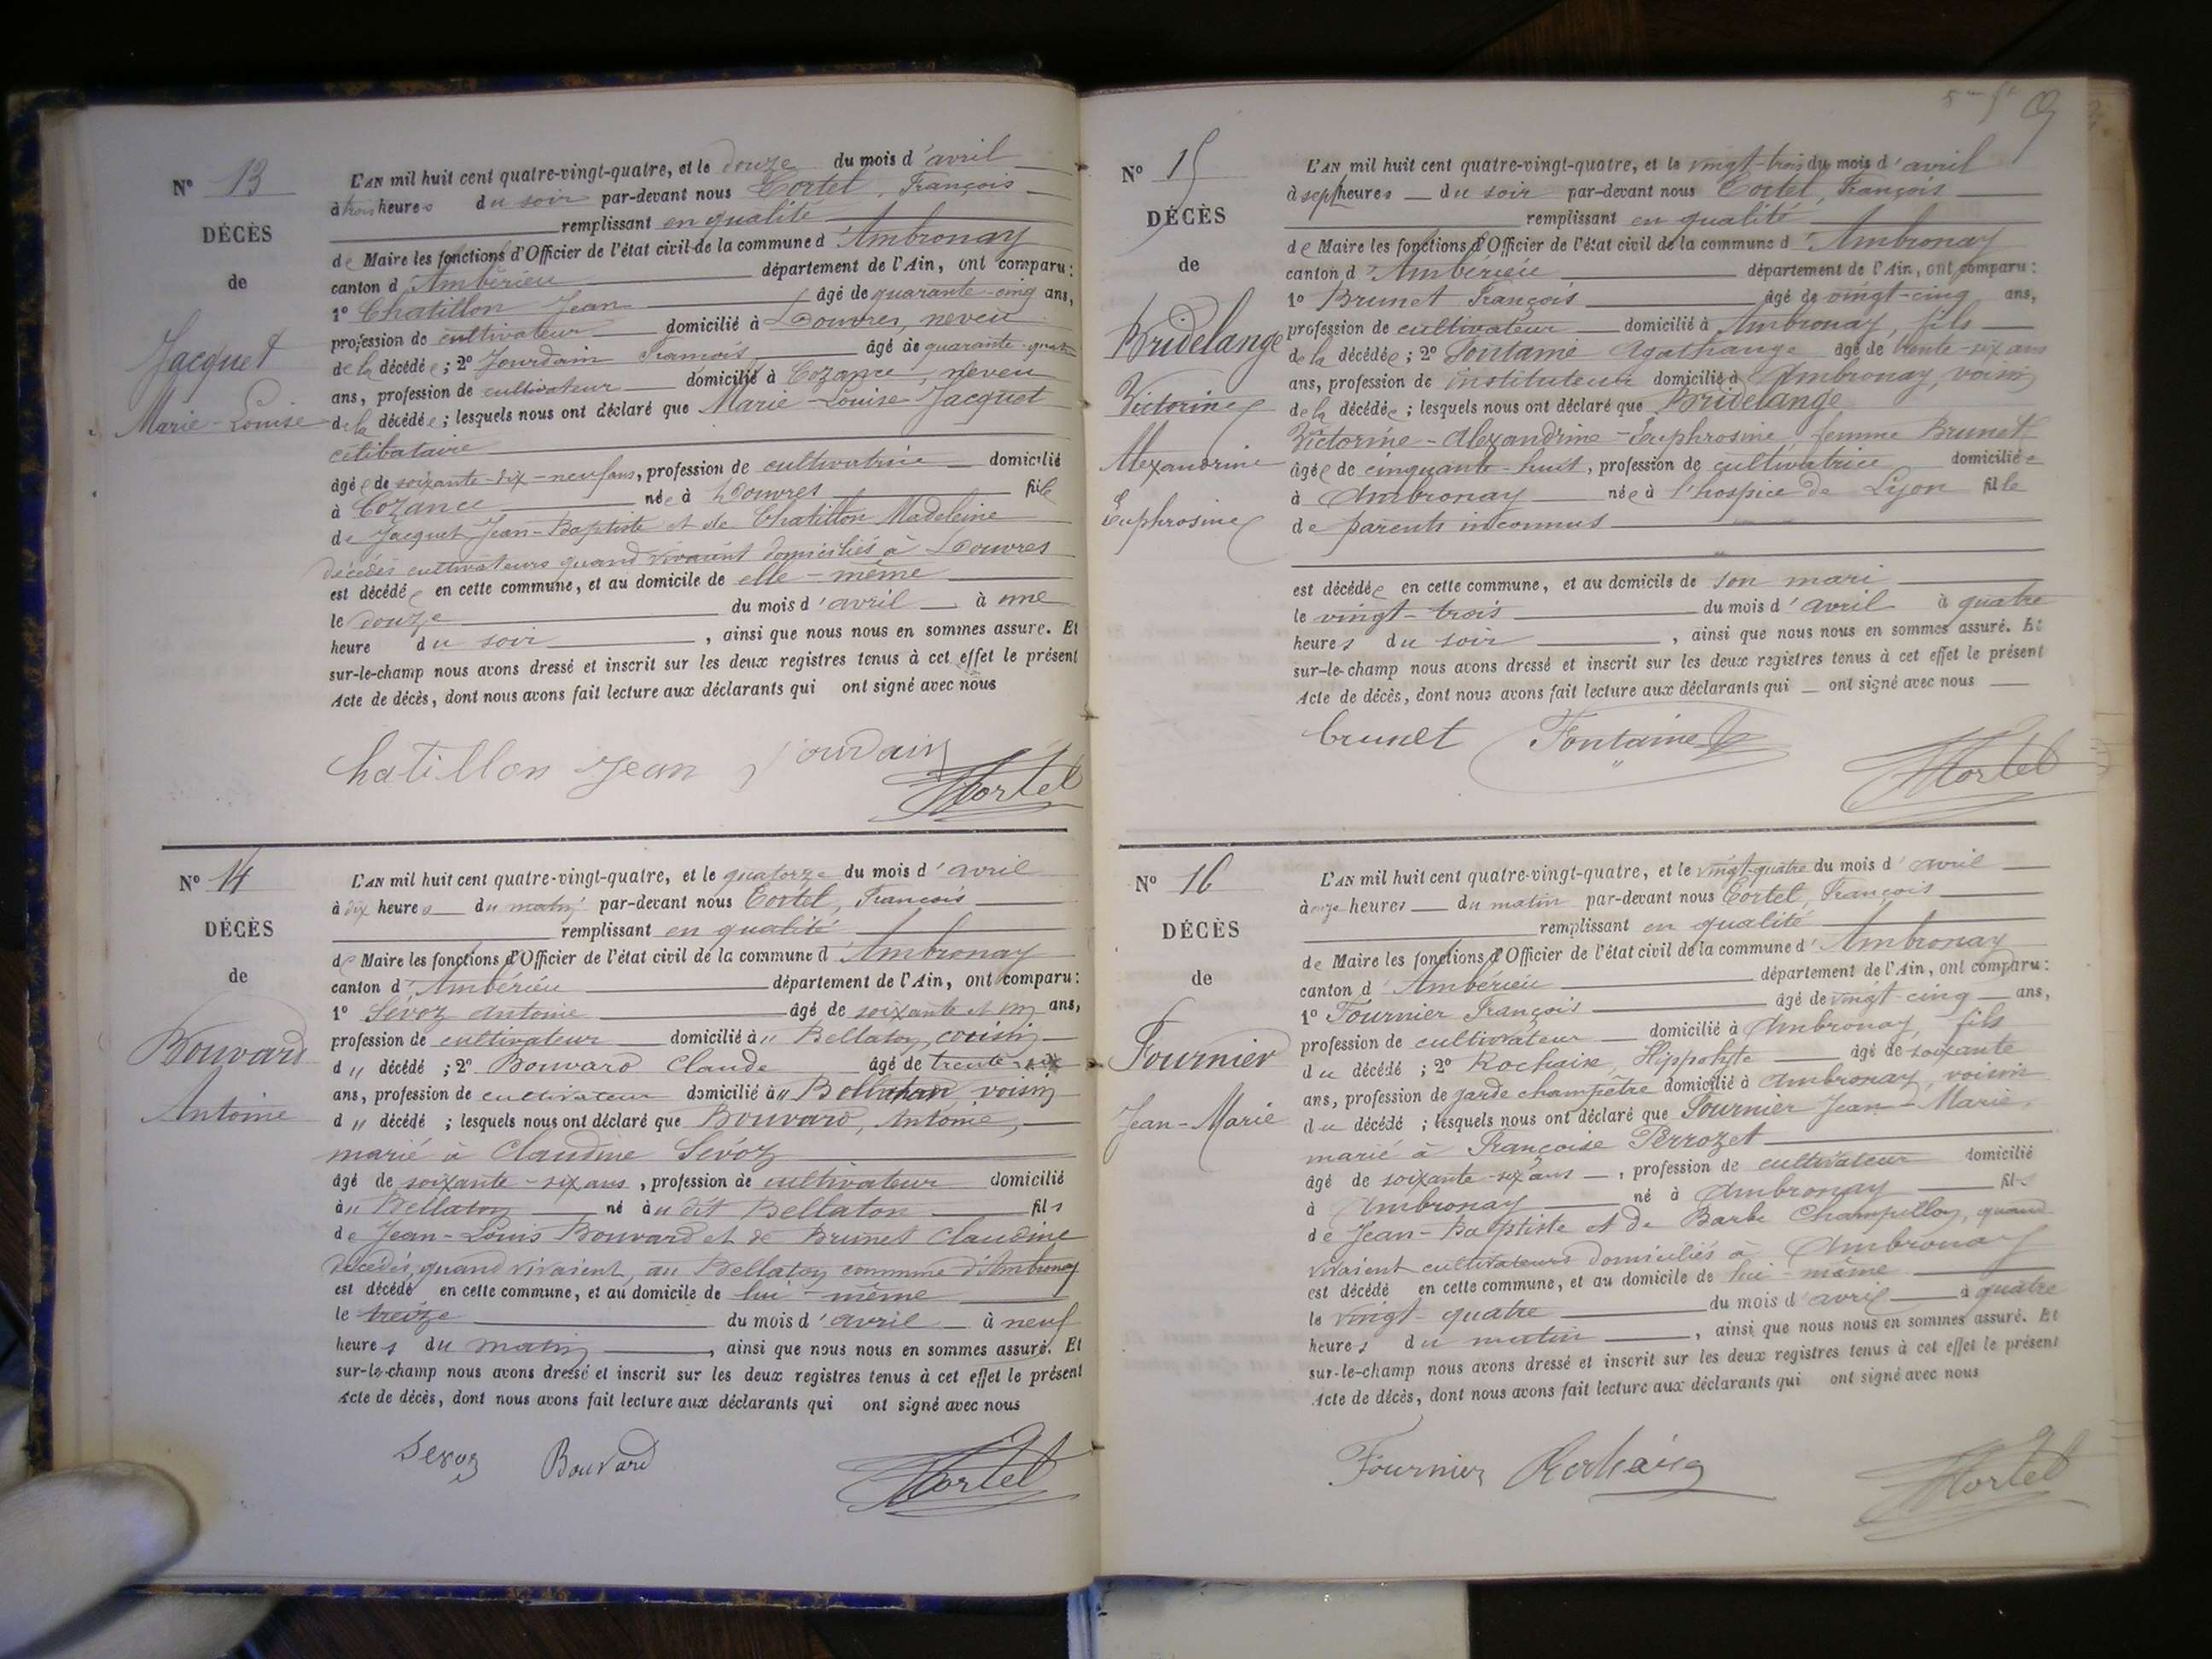 N° 13
DÉCÈS
de
Jacquet
Marie-Louise
L'AN mil huit cent quatre-vingt-quatre, et le douze du mois d'avril
à trois heures du soir par-devant nous Tortel, François
remplissant en qualité
de Maire les fonctions d'Officier de l'état civil de la commune d'Ambronay
canton d'Ambérieu département de l'Ain, ont comparu:
1° Chatillon Jean âgé de quarante-cinq ans,
profession de cultivateur domicilié à Douvres, neveu
de la décédée; 2° Jourdain François âgé de quarante-quatre
ans, profession de cultivateur domicilié à Cozance, neveu
de la décédée; lesquels nous ont déclaré que Marie-Louise Jacquet
célibataire
âgée de soixante-dix-neuf ans, profession de cultivatrice domicilié
à Cozance née à Douvres fille
de Jacquet Jean-Baptiste et de Chatillon Madeleine
décédés cultivateurs quand vivaient domiciliés à Douvres
est décédée en cette commune, et au domicile de elle-même
le douze du mois d'avril à une
heure du soir, ainsi que nous nous en sommes assuré. Et
sur-le-champ nous avons dressé et inscrit sur les deux registres tenus à cet effet le présent
Acte de décès, dont nous avons fait lecture aux déclarants qui ont signé avec nous
Chatillon Jean Jourdain
Tortel
N° 14
DÉCÈS
de
Bouvard
Antoine
L'AN mil huit cent quatre-vingt-quatre, et le quatorze du mois d'avril
à dix heures du matin par-devant nous Tortel, François
remplissant en qualité
de Maire les fonctions d'Officier de l'état civil de la commune d'Ambronay
canton d'Ambérieu département de l'Ain, ont comparu:
1° Sevoz Antoine âgé de soixante et un ans,
profession de cultivateur domicilié à " Bellaton, cousin
d " décédé; 2° Bouvard Claude âgé de trente six
ans, profession de cultivateur domicilié à " Bellaton voisin
d " décédé; lesquels nous ont déclaré que Bouvard, Antoine,
marié à Claudine Sévoz
âgé de soixante-six ans, profession de cultivateur domicilié
à " Bellaton né à u dit Bellaton fils
de Jean-Louis Bouvard et de Brunet Claudine
décédés, quand vivaient, au Bellaton commune d'Ambronay
est décédé en cette commune, et au domicile de lui-même
le treize du mois d'avril à neuf
heures du matin, ainsi que nous nous en sommes assuré. Et
sur-le-champ nous avons dressé et inscrit sur les deux registres tenus à cet effet le présent
Acte de décès, dont nous avons fait lecture aux déclarants qui ont signé avec nous
Sevoz Bouvard
Tortel
9
N° 15
DÉCÈS
de
Bridelange
Victorine
Alexandrine
Euphrosine
L'AN mil huit cent quatre-vingt-quatre, et le vingt-trois du mois d'avril
à sept heures du soir par-devant nous Tortel, François
remplissant en qualité
de Maire les fonctions d'Officier de l'état civil de la commune d'Ambronay
canton d'Ambérieu département de l'Ain, ont comparu:
1° Brunet François âgé de vingt-cinq ans,
profession de cultivateur domicilié à Ambronay, fils
de la décédée; 2° Fontaine Agathange âgé de trente-six ans
ans, profession de instituteur domicilié à Ambronay, voisin
de la décédée; lesquels nous ont déclaré que Bridelange
Victorine-Alexandrine-Euphrosine, femme Brunet
âgée de cinquante-huit, profession de cultivatrice domiciliée
à Ambronay née à l'hospice de Lyon fille
de parents inconnus
est décédée en cette commune, et au domicile de son mari
le vingt-trois du mois d'avril à quatre
heures du soir, ainsi que nous nous en sommes assuré. Et
sur-le-champ nous avons dressé et inscrit sur les deux registres tenus à cet effet le présent
Acte de décès, dont nous avons fait lecture aux déclarants qui ont signé avec nous
brunet Fontaine
Tortel
N° 16
DÉCÈS
de
Fournier
Jean-Marie
L'AN mil huit cent quatre-vingt-quatre, et le vingt-quatre du mois d'avril
à onze heures du matin par-devant nous Tortel, François
remplissant en qualité
de Maire les fonctions d'Officier de l'état civil de la commune d'Ambronay
canton d'Ambérieu département de l'Ain, ont comparu:
1° Fournier François âgé de vingt-cinq ans,
profession de cultivateur domicilié à Ambronay, fils
du décédé; 2° Rochaix, Hippolyte âgé de soixante
ans, profession de garde champêtre domicilié à Ambronay, voisin
du décédé; lesquels nous ont déclaré que Fournier Jean-Marie,
marié à Françoise Perrozet
âgé de soixante-six ans, profession de cultivateur domicilié
à Ambronay né à Ambronay fils
de Jean-Baptiste et de Barbe Champollon, quand
vivaient cultivateurs domiciliés à Ambronay
est décédé en cette commune, et au domicile de lui-même
le vingt-quatre du mois d'avril à quatre
heures du matin, ainsi que nous nous en sommes assuré. Et
sur-le-champ nous avons dressé et inscrit sur les deux registres tenus à cet effet le présent
Acte de décès, dont nous avons fait lecture aux déclarants qui ont signé avec nous
Fournier Rochaix
Tortel